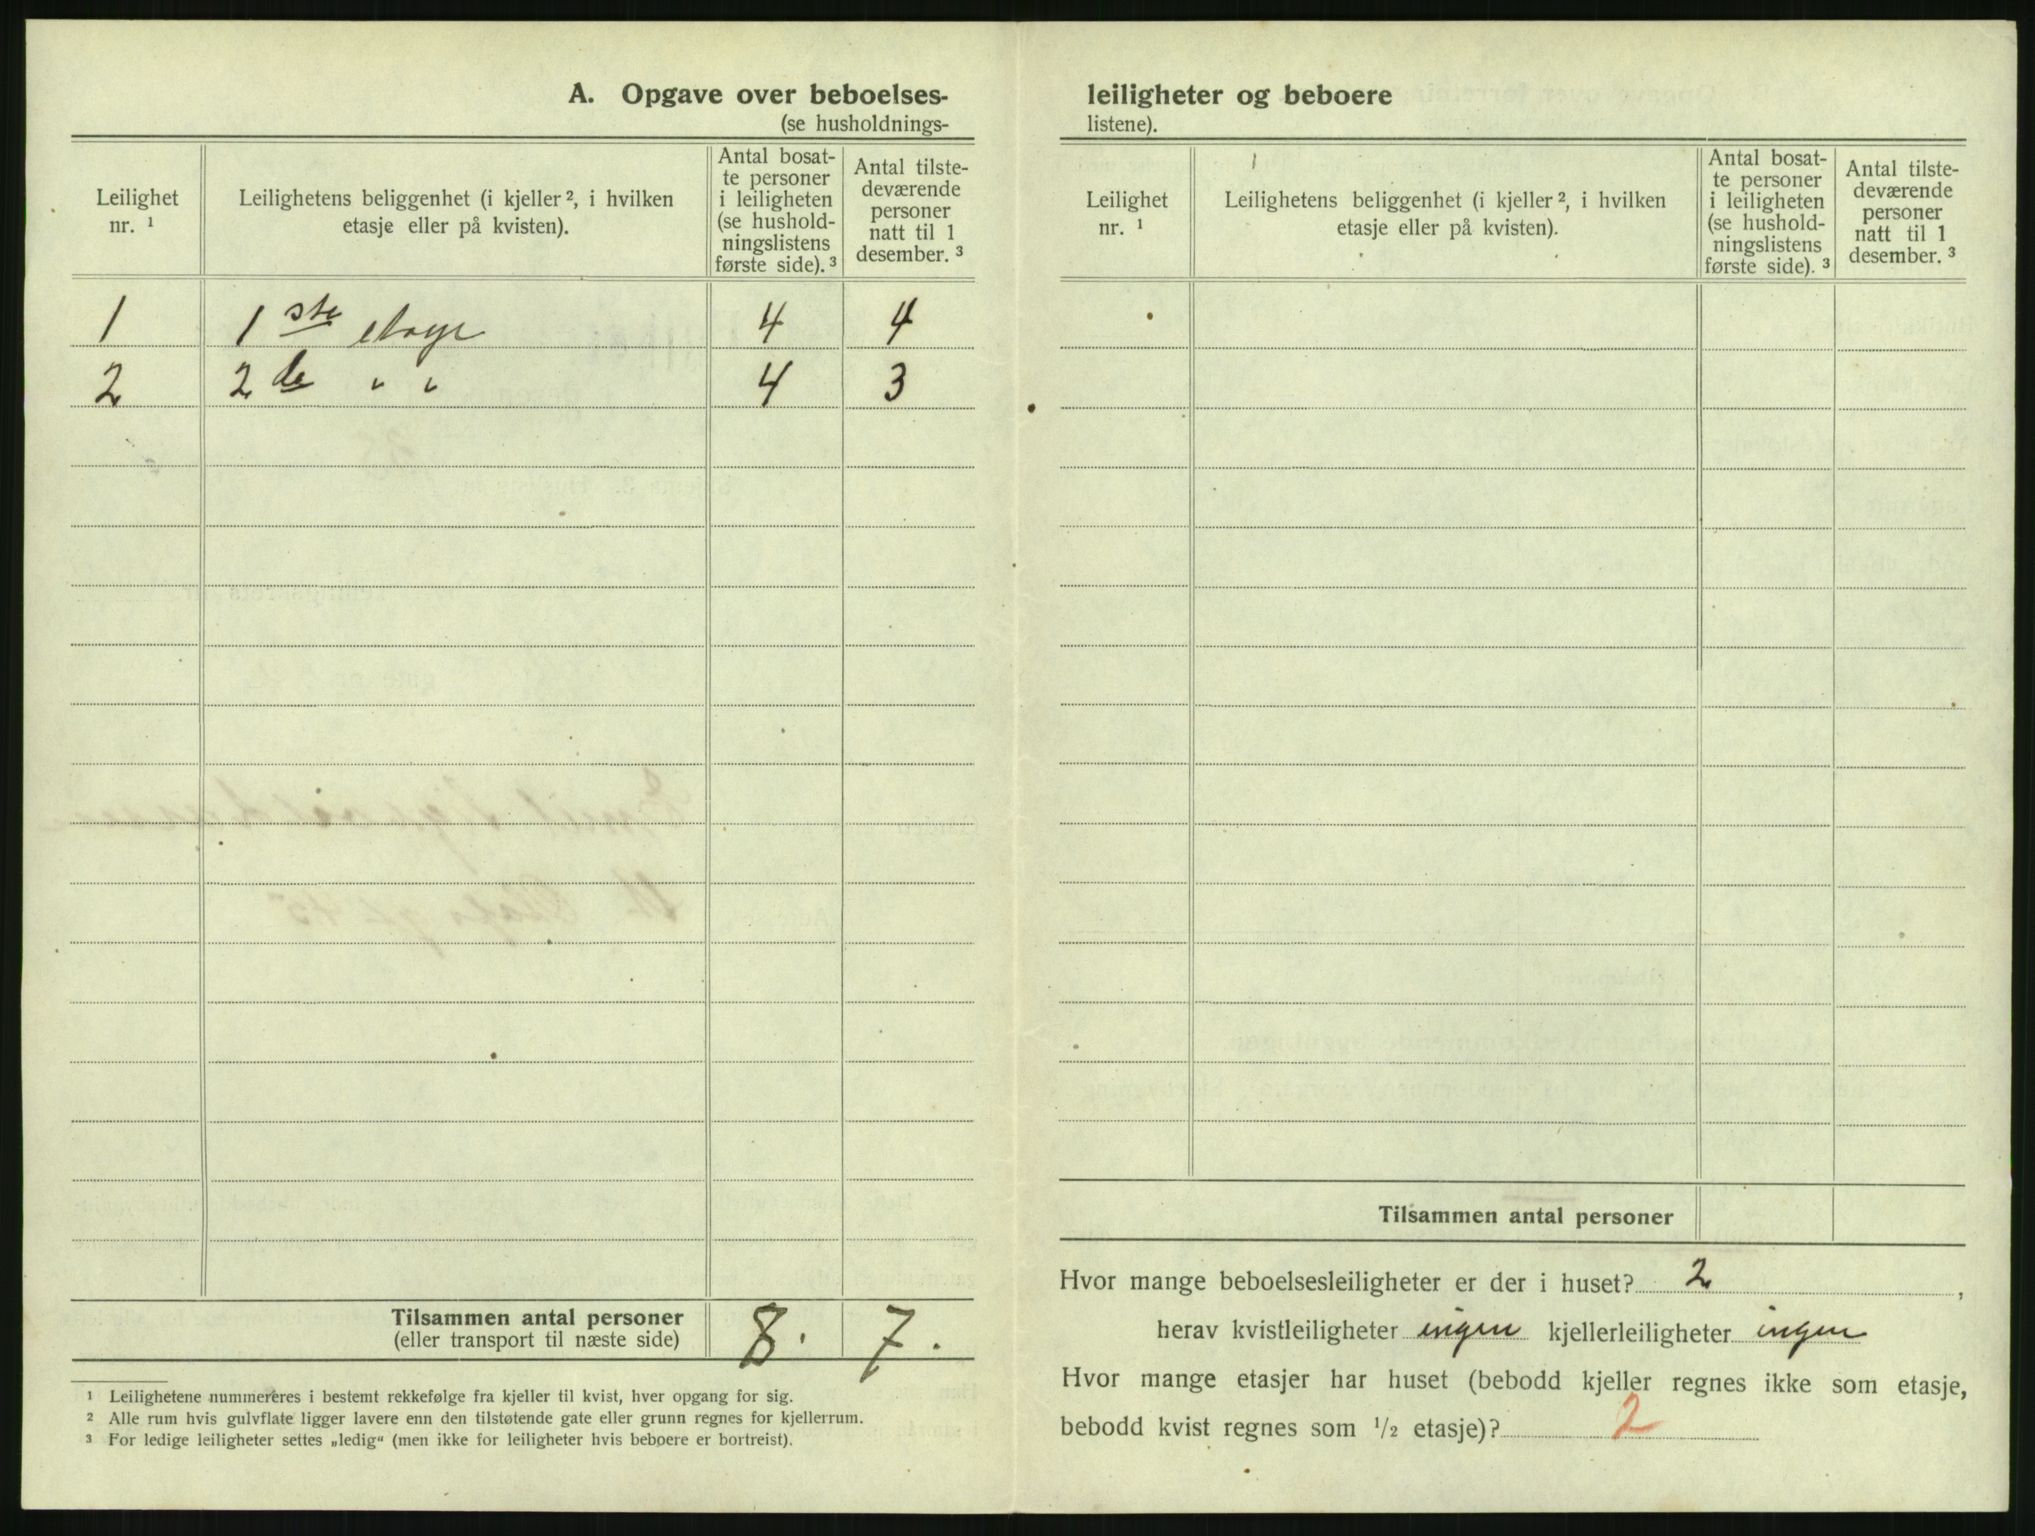 A. Opgave over beboelses-
(se husholdnings-
Leilighet
nr. ¹
Leilighetens beliggenhet (i kjeller ², i hvilken
etasje eller på kvisten).
Antal bosat-
te personer
i leiligheten
(se hushold-
ningslistens
første side). ³
Antal tilste-
deværende
personer
natt til 1
desember. ³
1 1ste etage 4 4
2 2de " " 4 3
Tilsammen antal personer
(eller transport til næste side)
8. 7.
¹ Leilighetene nummereres i bestemt rekkefølge fra kjeller til kvist, hver opgang for sig.
² Alle rum hvis gulvflate ligger lavere enn den tilstøtende gate eller grunn regnes for kjellerrum.
³ For ledige leiligheter settes „ledig“ (men ikke for leiligheter hvis beboere er bortreist).
leiligheter og beboere
listene).
Leilighet
nr. ¹
Leilighetens beliggenhet (i kjeller ², i hvilken
etasje eller på kvisten).
Antal bosat-
te personer
i leiligheten
(se hushold-
ningslistens
første side). ³
Antal tilste-
deværende
personer
natt til 1
desember. ³
Tilsammen antal personer
Hvor mange beboelsesleiligheter er der i huset? 2,
herav kvistleiligheter ingen kjellerleiligheter ingen
Hvor mange etasjer har huset (bebodd kjeller regnes ikke som etasje,
bebodd kvist regnes som ¹/₂ etasje)? 2